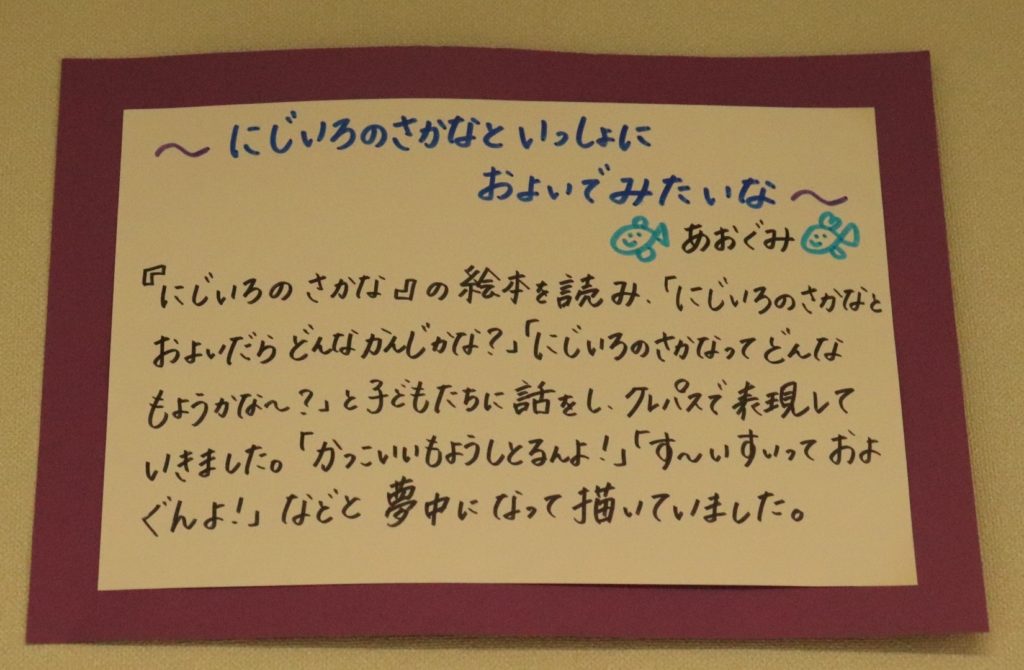 ～にじいろのさかなといっしょに
およいでみたいな～
あおぐみ
『にじいろのさかな』の絵本を読み、「にじいろのさかなと
およいだらどんなかんじかな?」「にじいろのさかなってどんな
もようかな～?」と子どもたちに話をし、クレパスで表現して
いきました。「かっこいいもようしとるんよ!」「す～いすいっておよ
ぐんよ!」などと夢中になって描いていました。